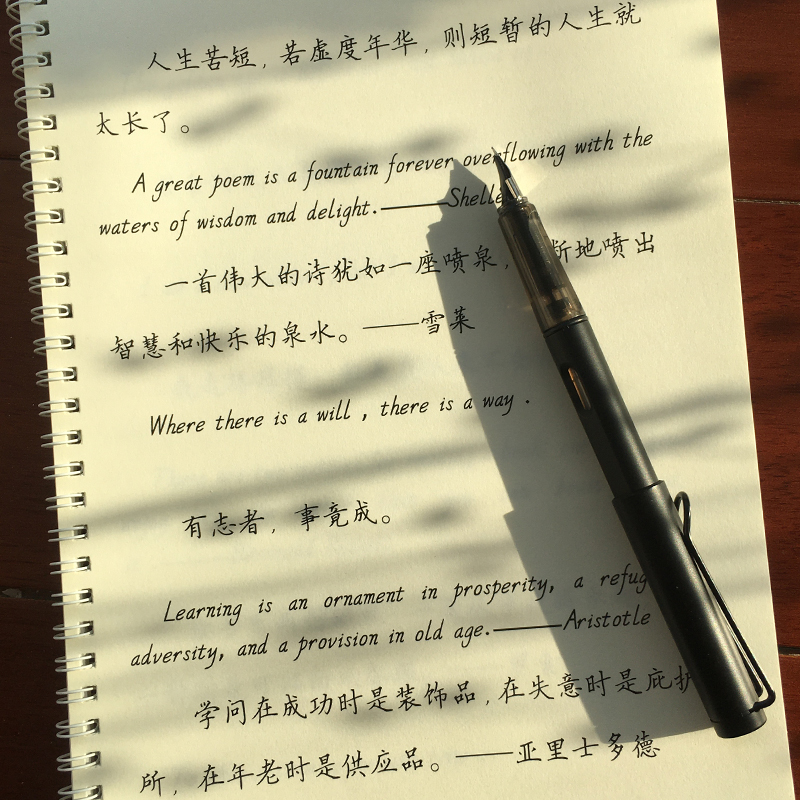 人生苦短，若虚度年华，则短暂的人生就
太长了。
A great poem is a fountain forever overflowing with the
waters of wisdom and delight.——Shelle
一首伟大的诗犹如一座喷泉，断地喷出
智慧和快乐的泉水。——雪莱
Where there is a will , there is a way .
有志者，事竟成。
Learning is an ornament in prosperity, a refug
adversity, and a provision in old age.——Aristotle
学问在成功时是装饰品，在失意时是庇护
所，在年老时是供应品。——亚里士多德